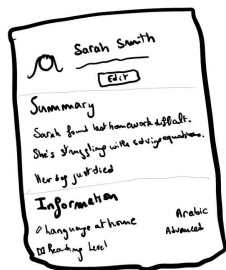 Sarah Smith
Edit
Summary
Sarah found last homework difficult.
She's struggling with solving equations.
Her dog just died
Information
Language at home Arabic
Reading Level Advanced